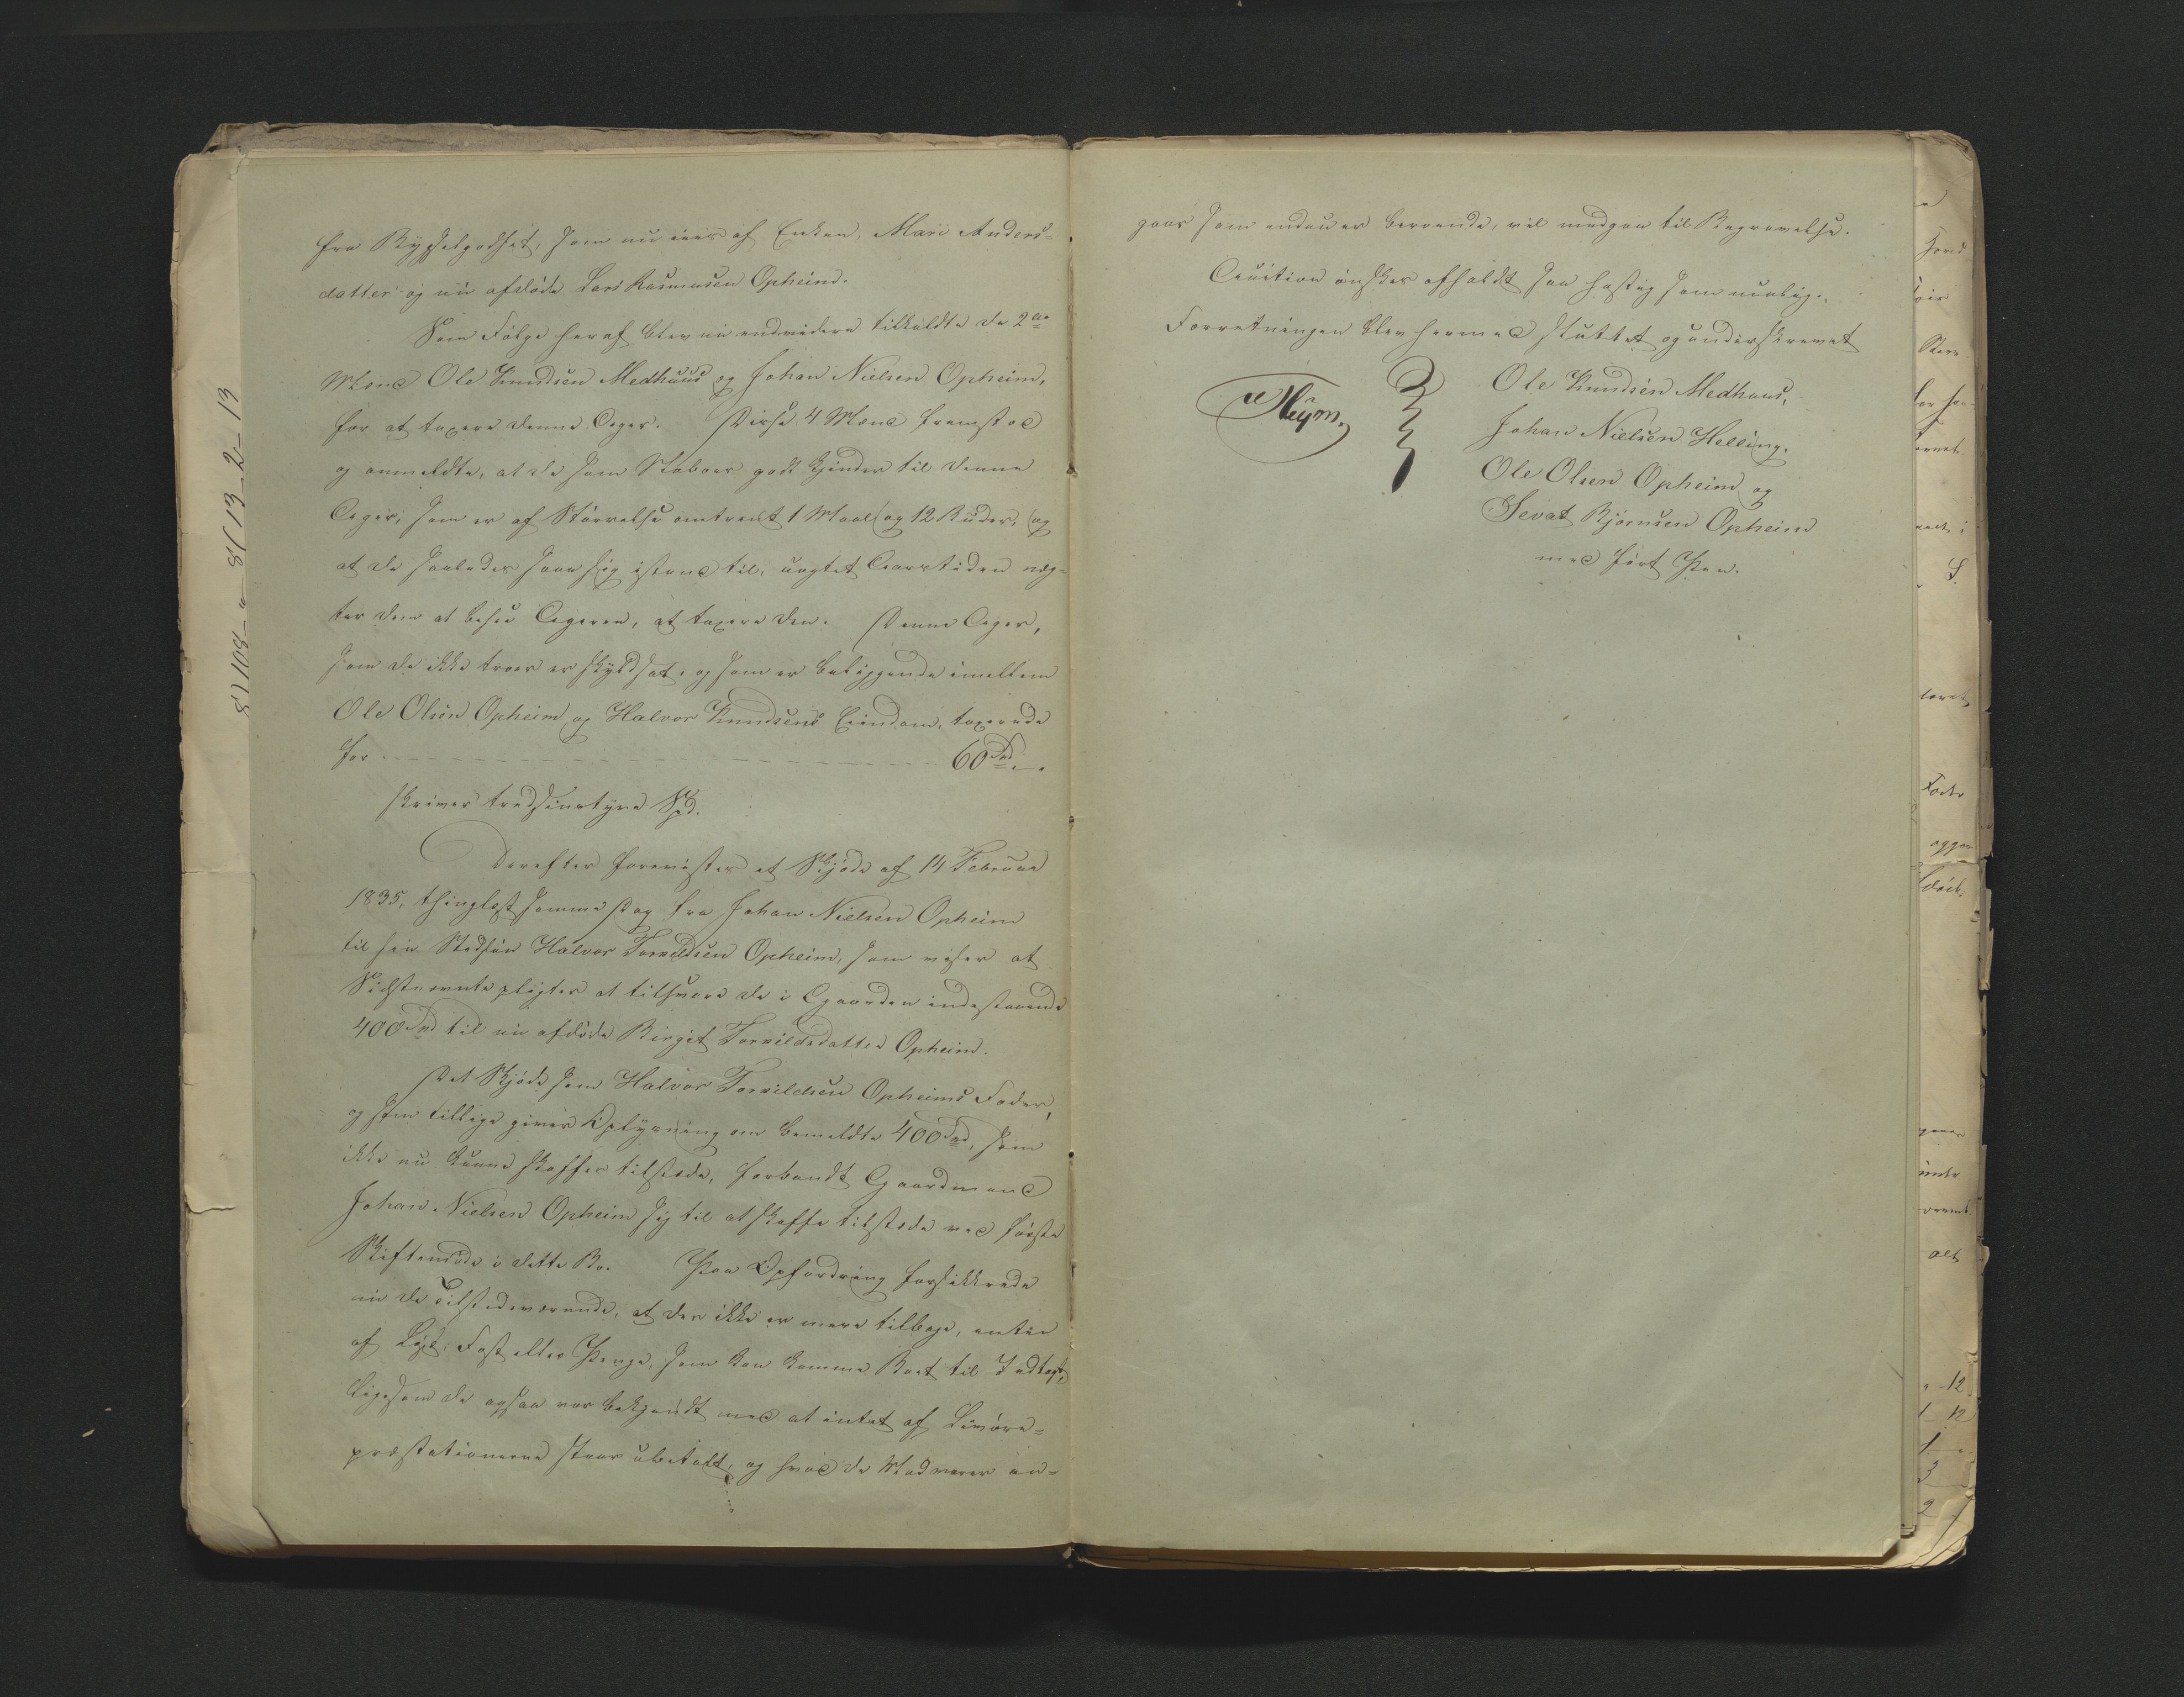 fra Bygselgodset, som nu eies af Enken, Mari Anders-
datter og nu afdøde Lars Rasmusen Opheim.
Som Følge heraf blev nu endvidere tilkaldte de 2de
Mænd Ole Knudsen Medhuus og Johan Nielsen Opheim,
for at taxere denne Ager. Disse 4 Mænd fremstod
og anmeldte, at de som Naboer godt kjender til denne
Ager, som er af Størrelse omtrent 1 Maal og 12 Ruder, og
at de saaledes saae sig istand til, uagtet Aarstiden næg-
ter dem at besee Ageren, at taxere den. Denne Ager,
som de ikke troer er skyldsat, og som er beliggende imellem
Ole Olsen Opheim og Halvor Knudsens Eiendom, taxerede
for 60 Spd. "
skriver tredsindstyve Spd.
Derefter forevistes et Skjøde af 14 Februar
1835, thinglæst samme Dag fra Johan Nielsen Opheim
til sin Stedsøn Halvor Torvildsen Opheim, som viser at
Sidstnævnte pligter at tilsvare de i Gaarden indestaaende
400 Spd til nu afdøde Birgit Torvildsdatter Opheim.
Det Skjøde som Halvor Torvildsen Opheims Fader,
og som tillige giver Oplysning om bemeldte 400 Spd, som
ikke nu kunne skaffes tilstede, forbandt Gaardmand
Johan Nielsen Opheim sig til at skaffe tilstede ved første
Skiftemøde i dette Bo. Paa Opfordring forsikkrede
nu de Tilstedeværende, at der ikke er mere tilbage, enten
af Løst, Fast eller Penge, som kan komme Boet til Indtægt,
ligesom de ogsaa var bekjendt med at intet af Livøre-
præstationerne staar ubetalt, og hvad de Madvarer an-
gaar som endnu er beroende, vil medgaa til Begravelse.
Auction ønskes afholdt saa hastig som muelig.
Forretningen blev hermed sluttet og underskrevet
Heym.
Ole Knudsen Medhuus,
Johan Nielsen Helling.
Ole Olsen Opheim og
Sevat Bjørnsen Opheim
med ført Pen.
8) 108 a 8( 13-2-13